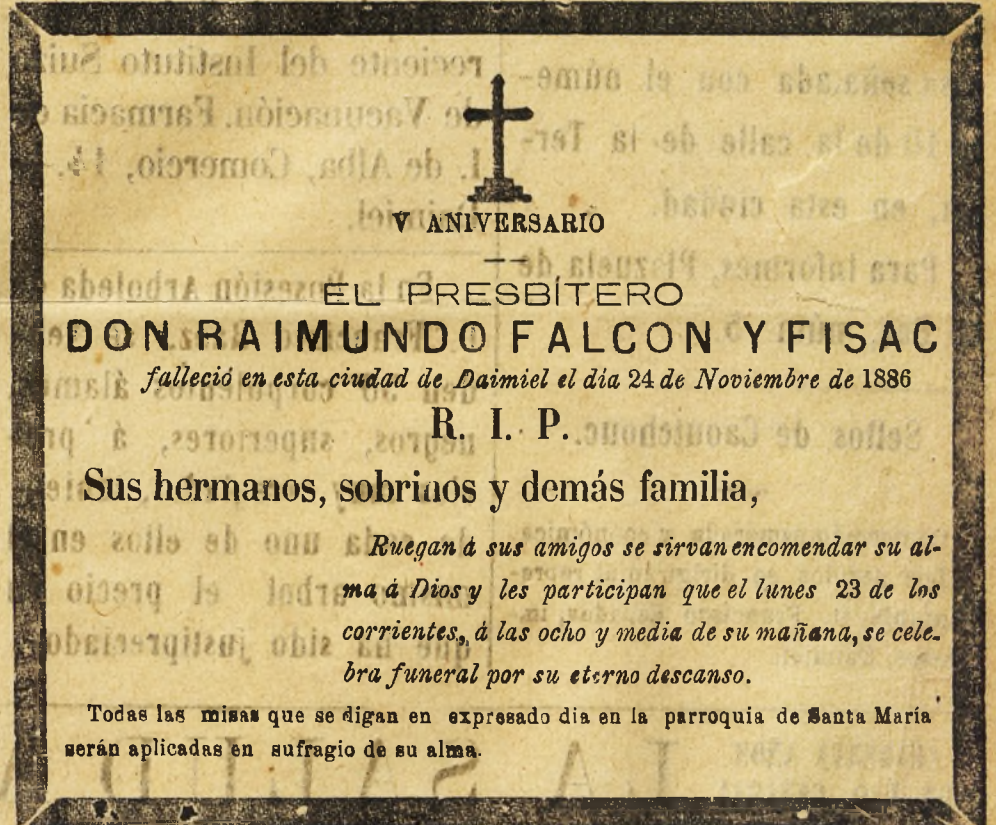 V ANIVERSARIO
EL PRESBÍTERO
DON RAIMUNDO FALCON Y FISAC
falleció en esta ciudad de Daimiel el día 24 de Noviembre de 1886
R. I. P.
Sus hermanos, sobrinos y demás familia,
Ruegan á sus amigos se sirvan encomendar su al-
ma á Dios y les participan que el lunes 23 de los
corrientes, á las ocho y media de su mañana, se cele-
bra funeral por su eterno descanso.
Todas las misas que se digan en expresado dia en la parroquia de Santa María
serán aplicadas en sufragio de su alma.